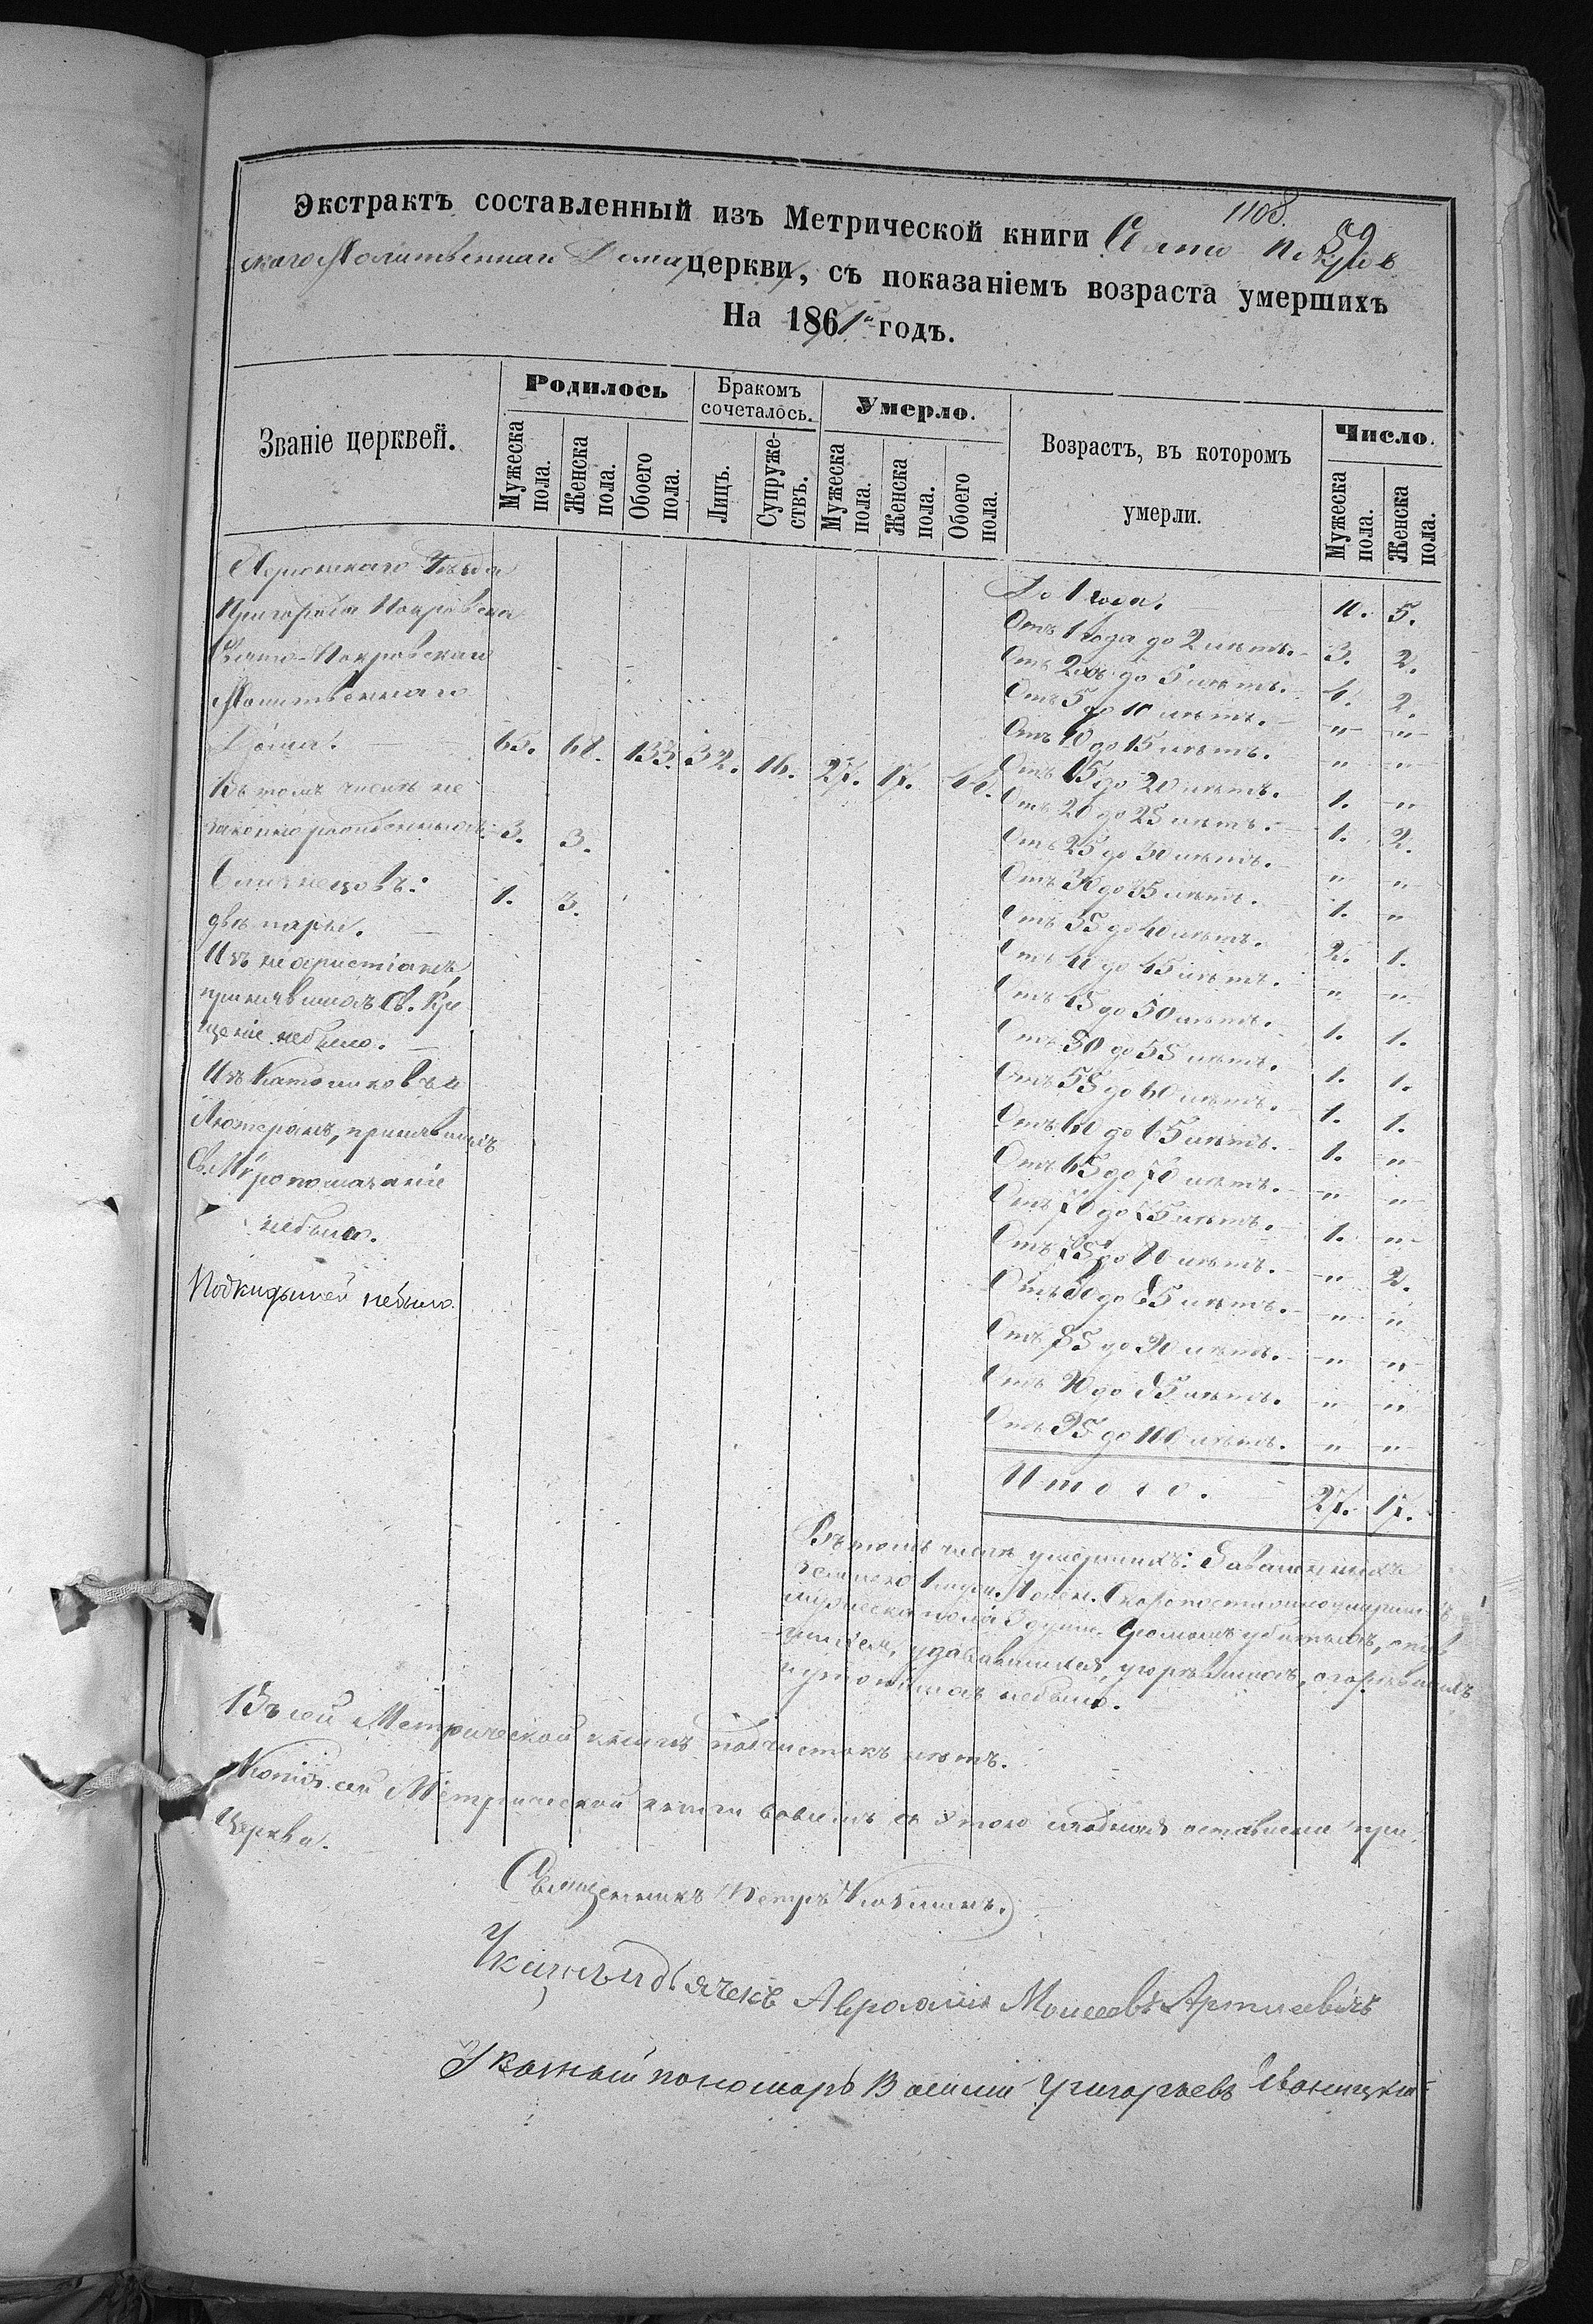 1108.
59
Экстрактъ составленный изъ Метрической книги Свято-Покров
скаго Молитвеннаго Дома церкви, съ показаніемъ возраста умершихъ
На 1861й годъ.
Званіе церквей.
Родилось
Бракомъ сочеталось.
Умерло.
Возрастъ, въ которомъ
умерли.
Число.
Мужеска пола.
Женска пола.
Обоего пола.
Лицъ.
Супруже-ствъ.
Мужеска пола.
Женска пола.
Обоего пола.
Мужеска пола.
Женска пола.
Херсонскаго Уѣзда
Пригорода Покровска
Свято-Покровскаго
Молитвеннаго
Дома. 65. 68. 133. 32. 16. 27. 17. 44.
Въ томъ числѣ не
законнорожденныхъ: 3. 3.
Близнецовъ: 1. 3.
двѣ пары.
Изъ нехристіанъ,
принявшихъ Св. Кре
щеніе небыло.
Изъ Католиковъ и
Лютеранъ, принявшихъ
Св. Мѵропомазаніе
небыло.
Подкидышей небыло.
До 1 года. 10. 5.
Отъ 1 года до 2 лѣтъ. 3. 2.
Отъ 2хъ до 5 лѣтъ. 4. 2.
Отъ 5 до 10 лѣтъ. " "
Отъ 10 до 15 лѣтъ. " "
Отъ 15 до 20 лѣтъ. 1. "
Отъ 20 до 25 лѣтъ. 1. 2.
Отъ 25 до 30 лѣтъ. " "
Отъ 30 до 35 лѣтъ. 1. "
Отъ 35 до 40 лѣтъ. 2. 1.
Отъ 40 до 45 лѣтъ. " "
Отъ 45 до 50 лѣтъ. 1. 1.
Отъ 50 до 55 лѣтъ. 1. 1.
Отъ 55 до 60 лѣтъ. 1. 1.
Отъ 60 до 65 лѣтъ. 1. "
Отъ 65 до 70 лѣтъ. " "
Отъ 70 до 75 лѣтъ. 1. "
Отъ 75 до 80 лѣтъ. " 2.
Отъ 80 до 85 лѣтъ. " "
Отъ 85 до 90 лѣтъ. " "
Отъ 90 до 95 лѣтъ. " "
Отъ 95 до 100 лѣтъ. " "
Итого. 27. 17.
Въ томъ числѣ умершихъ:
Скоропостижно умершихъ
мужеска пола 3 души. Громомъ убитыхъ,
удавившихся, угорѣвшихъ, сгорѣвшихъ
небыло.
Въ сей Метрической книгѣ подчистокъ нѣтъ.
Копія сей Метрической книги во всемъ съ этою сходная оставлена при
Церкви.
Священникъ Петръ
Указный дьячекъ Аврамій Моисеевъ
Указный пономарь Василій Григорьевъ